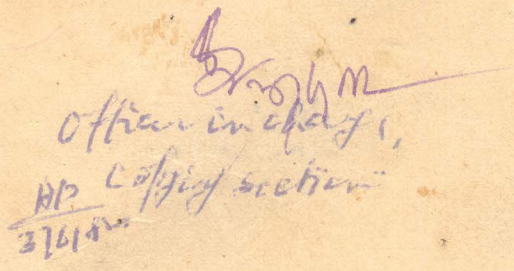 Officer in charge,
Copying section
AP
3/6/